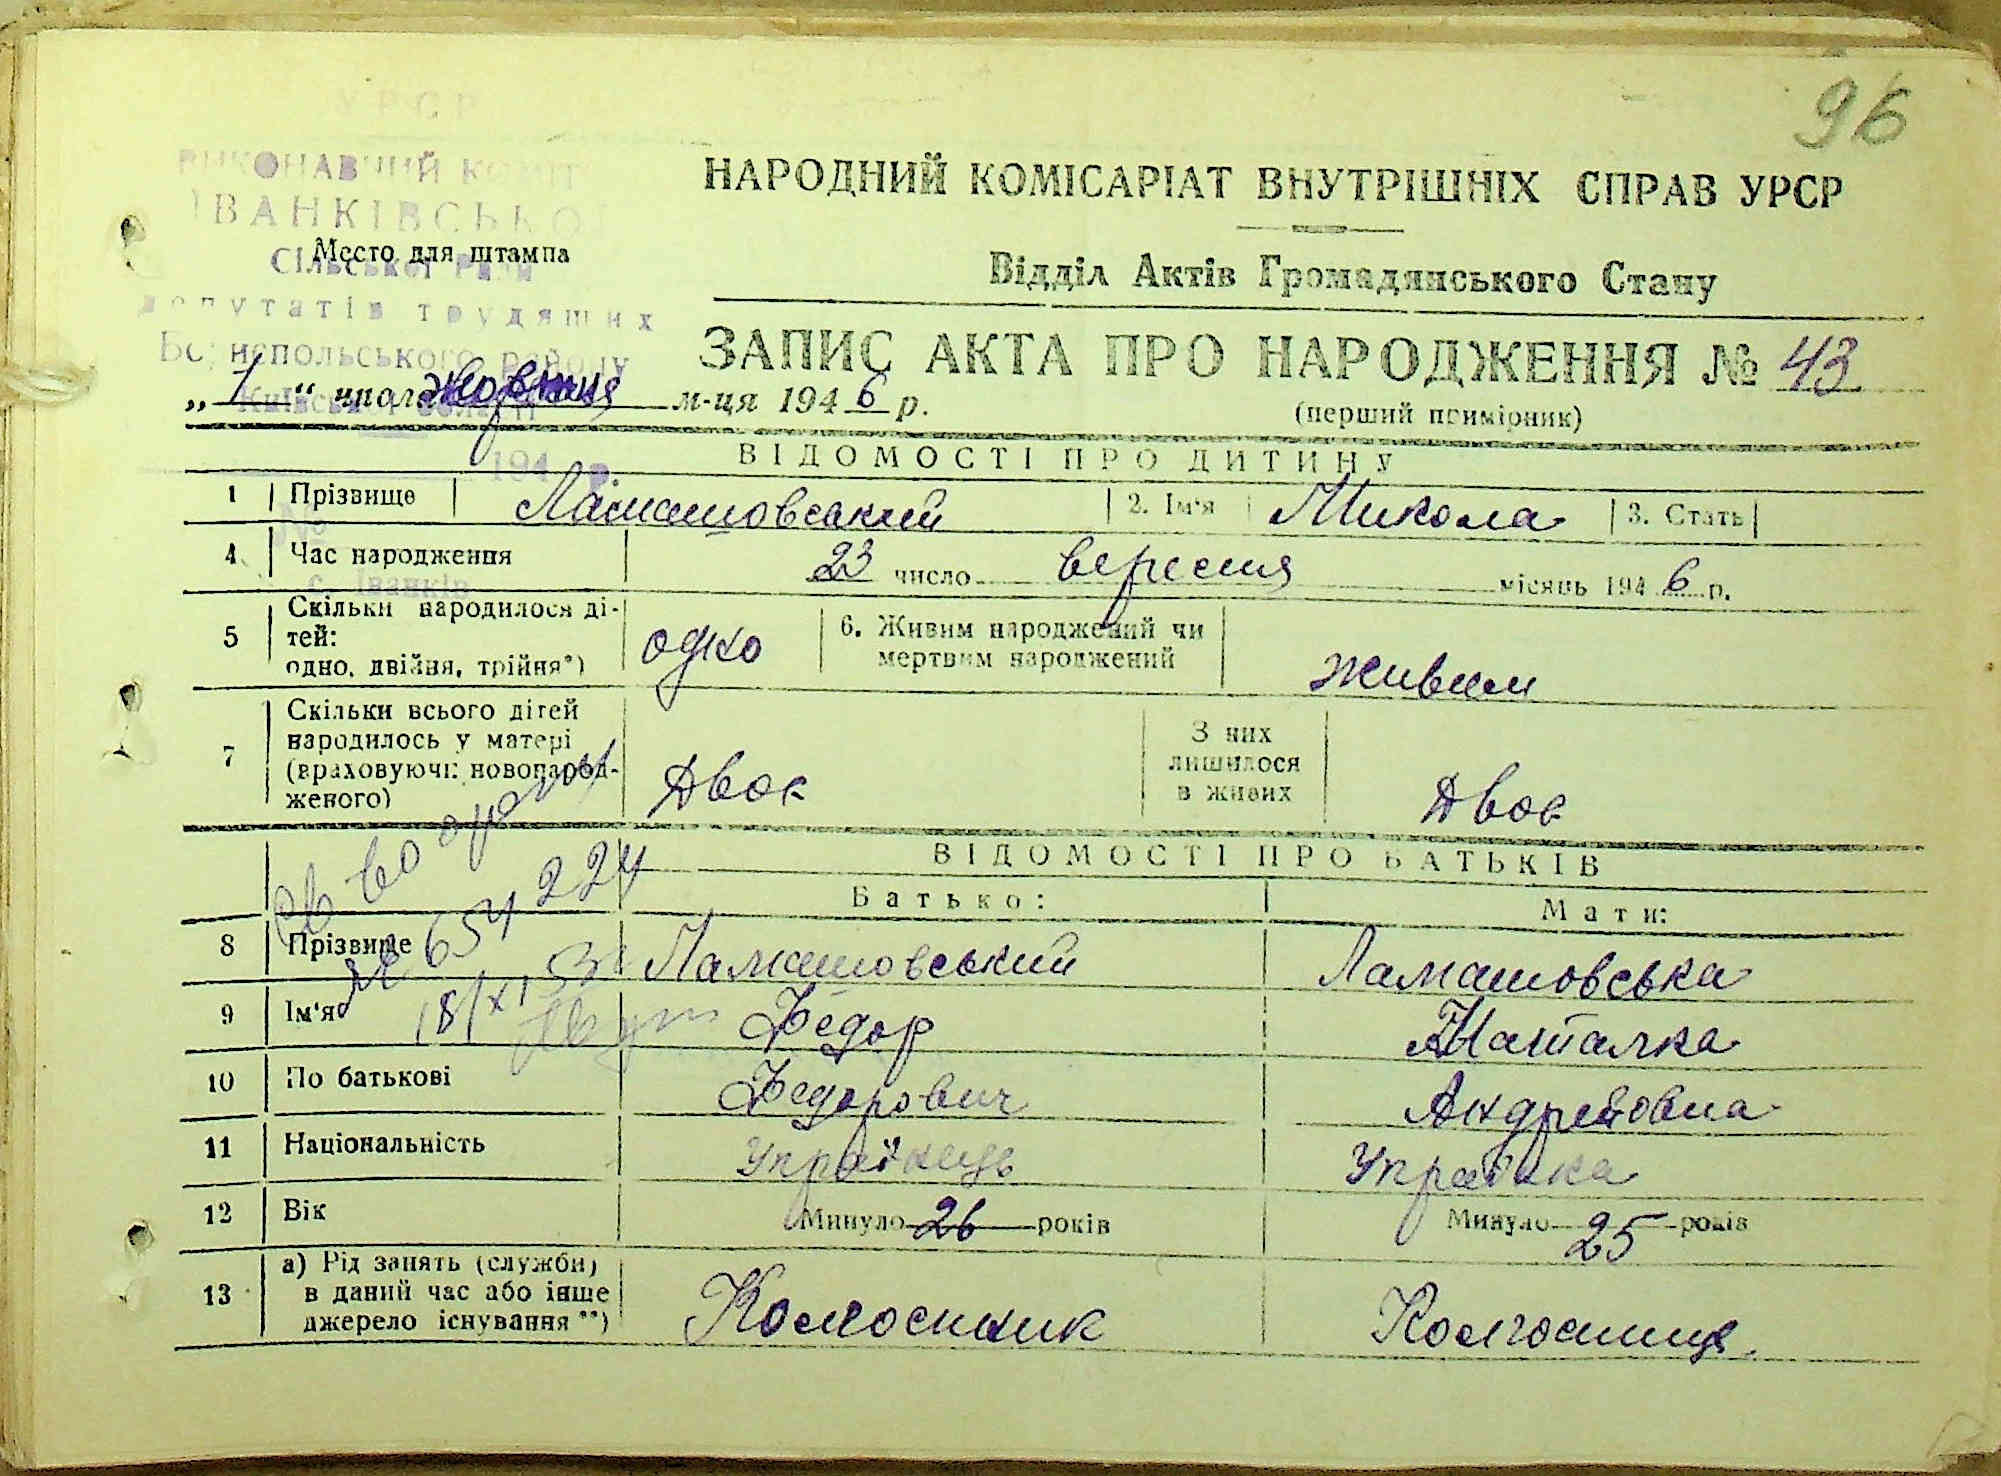 96
УРСР
ВИКОНАВЧИЙ КОМІТ
ІВАНКІВСЬКО
Сільської Ради
депутатів трудящих
Бориспольського району
Київської області
194 р.
№
с. Іванків
Место для штампа
НАРОДНИЙ КОМІСАРІАТ ВНУТРІШНІХ СПРАВ УРСР
Відділ Актів Громадянського Стану
ЗАПИС АКТА ПРО НАРОДЖЕННЯ № 43
(перший примірник)
„ 1 “ жовтня м-ця 1946 р.
ВІДОМОСТІ ПРО ДИТИНУ
1 Прізвище Ламашовський 2. Ім'я Микола 3. Стать
4 Час народження 23 число вересня місяць 1946 р.
5 Скільки народилося дітей: одно, двійня, трійня*) одно 6. Живим народжений чи мертвим народжений живим
7 Скільки всього дітей народилось у матері (враховуючи новонародженого) Двоє З них лишилося в живих Двоє
ВІДОМОСТІ ПРО БАТЬКІВ
Батько: Мати:
8 Прізвище Ламашовський Ламашовська
9 Ім'я Федор Наталка
10 По батькові Федорович Андреївна
11 Національність Українець Українка
12 Вік Минуло 26 років Минуло 25 років
13 а) Рід занять (служби) в даний час або інше джерело існування **) Колгосник Колгосниця